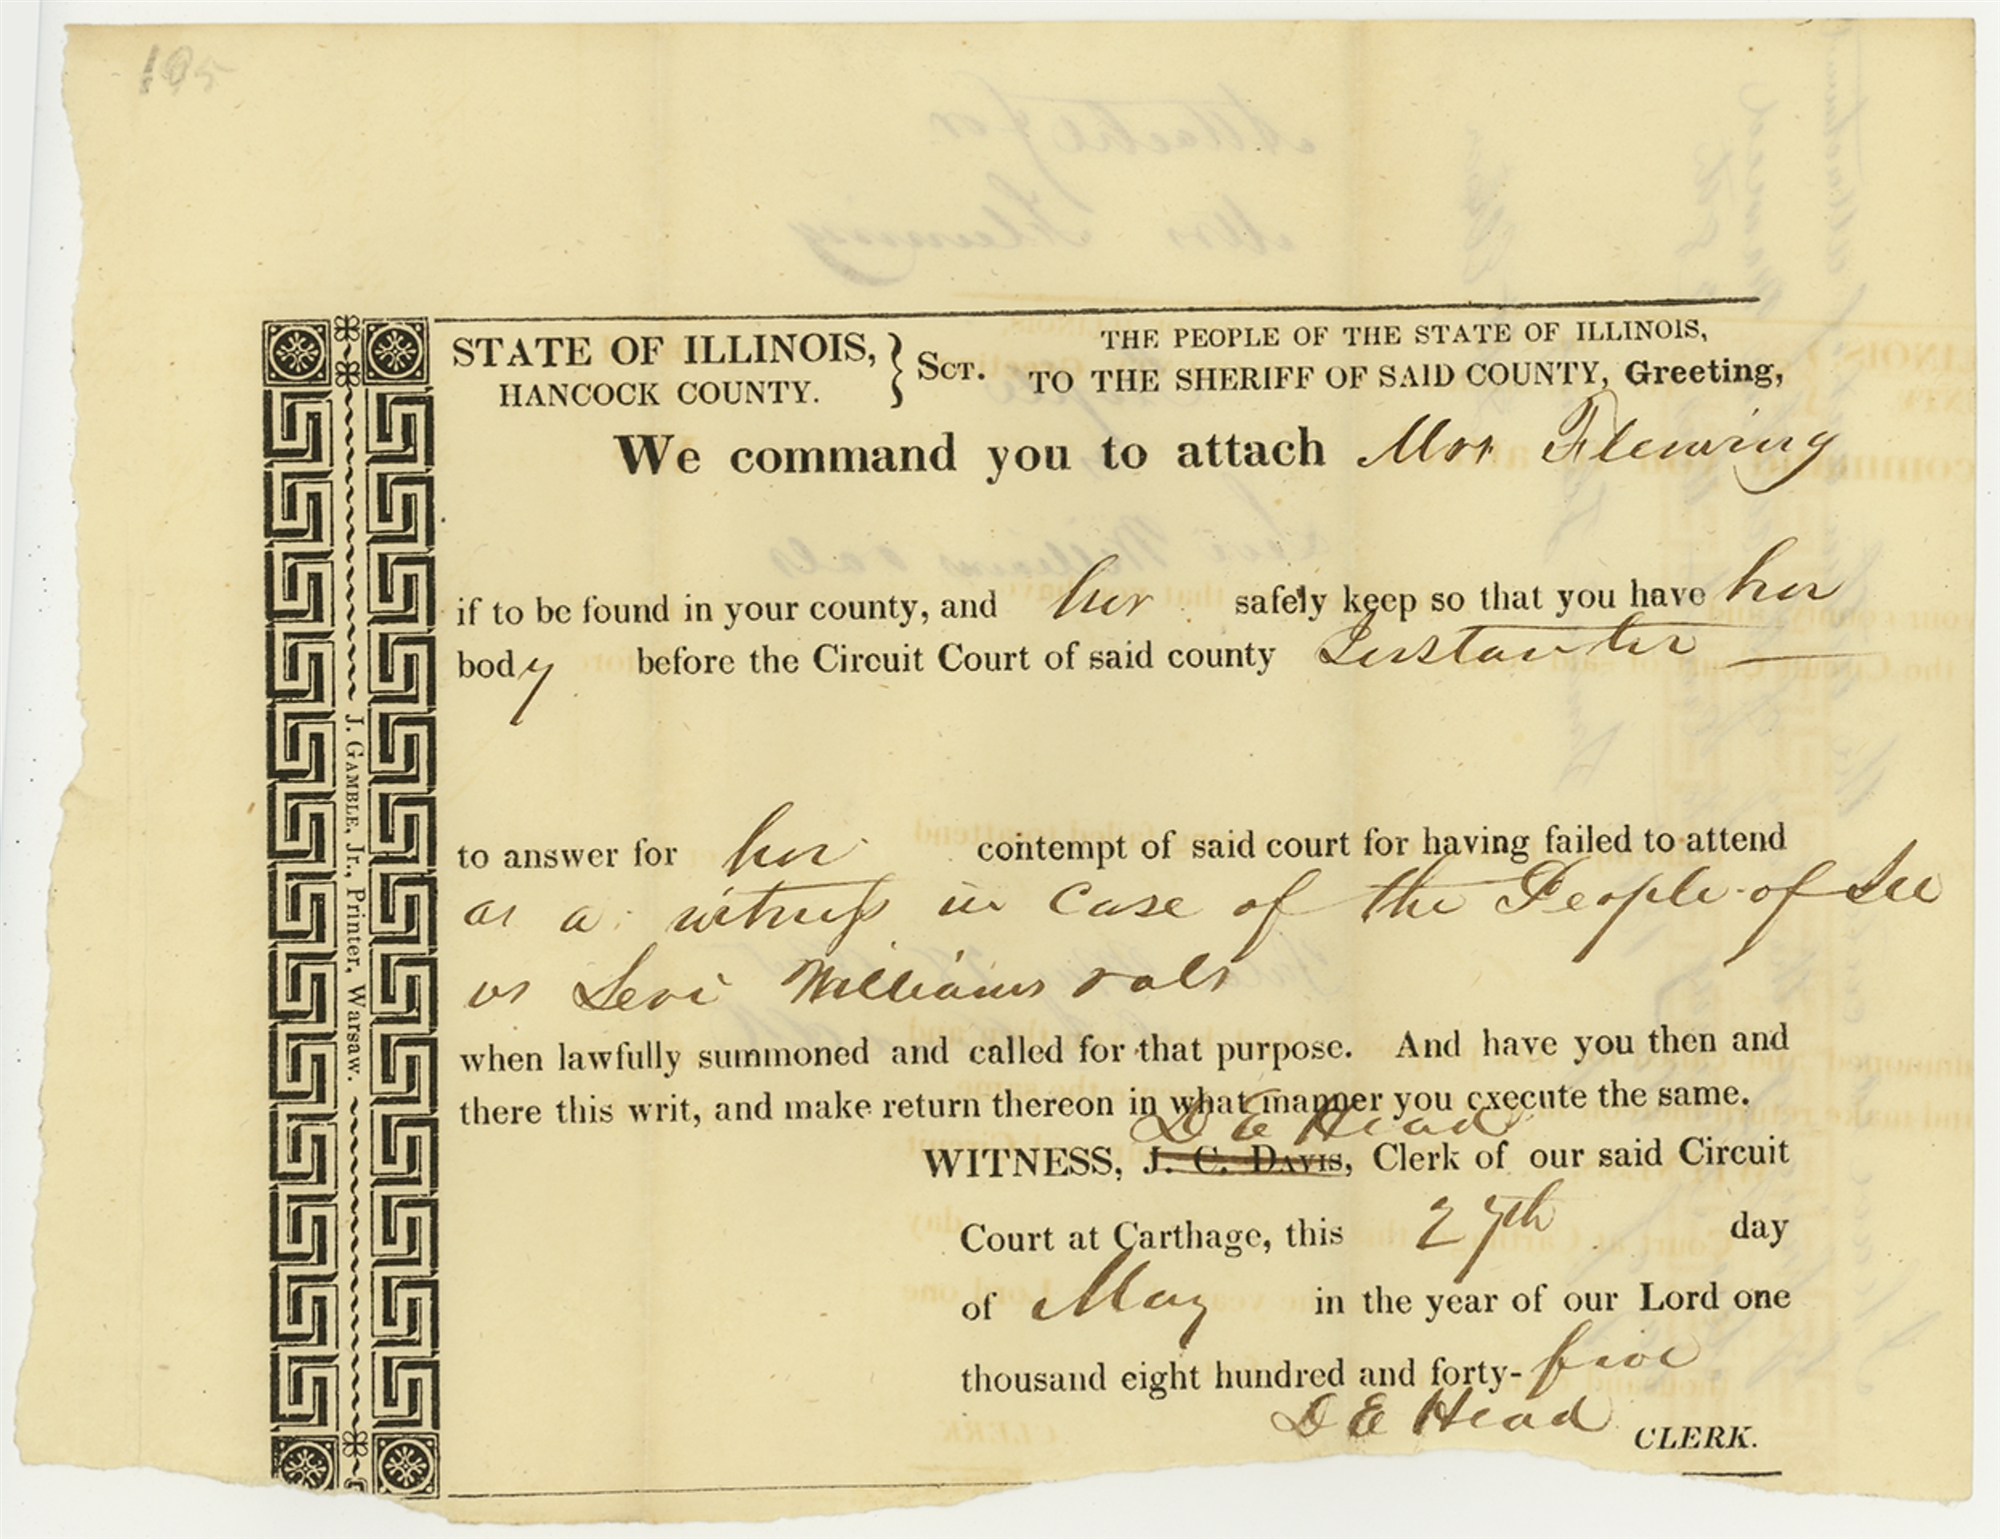 195
STATE OF ILLINOIS,
HANCOCK COUNTY.
} Sct.
THE PEOPLE OF THE STATE OF ILLINOIS,
TO THE SHERIFF OF SAID COUNTY, Greeting,
We command you to attach Mrs Fleming
if to be found in your county, and her safely keep so that you have her
body before the Circuit Court of said county Instanter
to answer for her contempt of said court for having failed to attend
as a witness in case of the People of Ill
vs Levi Williams & als
when lawfully summoned and called for that purpose. And have you then and
there this writ, and make return thereon in what manner you execute the same.
D E Head
WITNESS, J. C. Davis, Clerk of our said Circuit
Court at Carthage, this 27th day
of May in the year of our Lord one
thousand eight hundred and forty-five
D E Head CLERK.
J. Gamble, Jr., Printer, Warsaw.